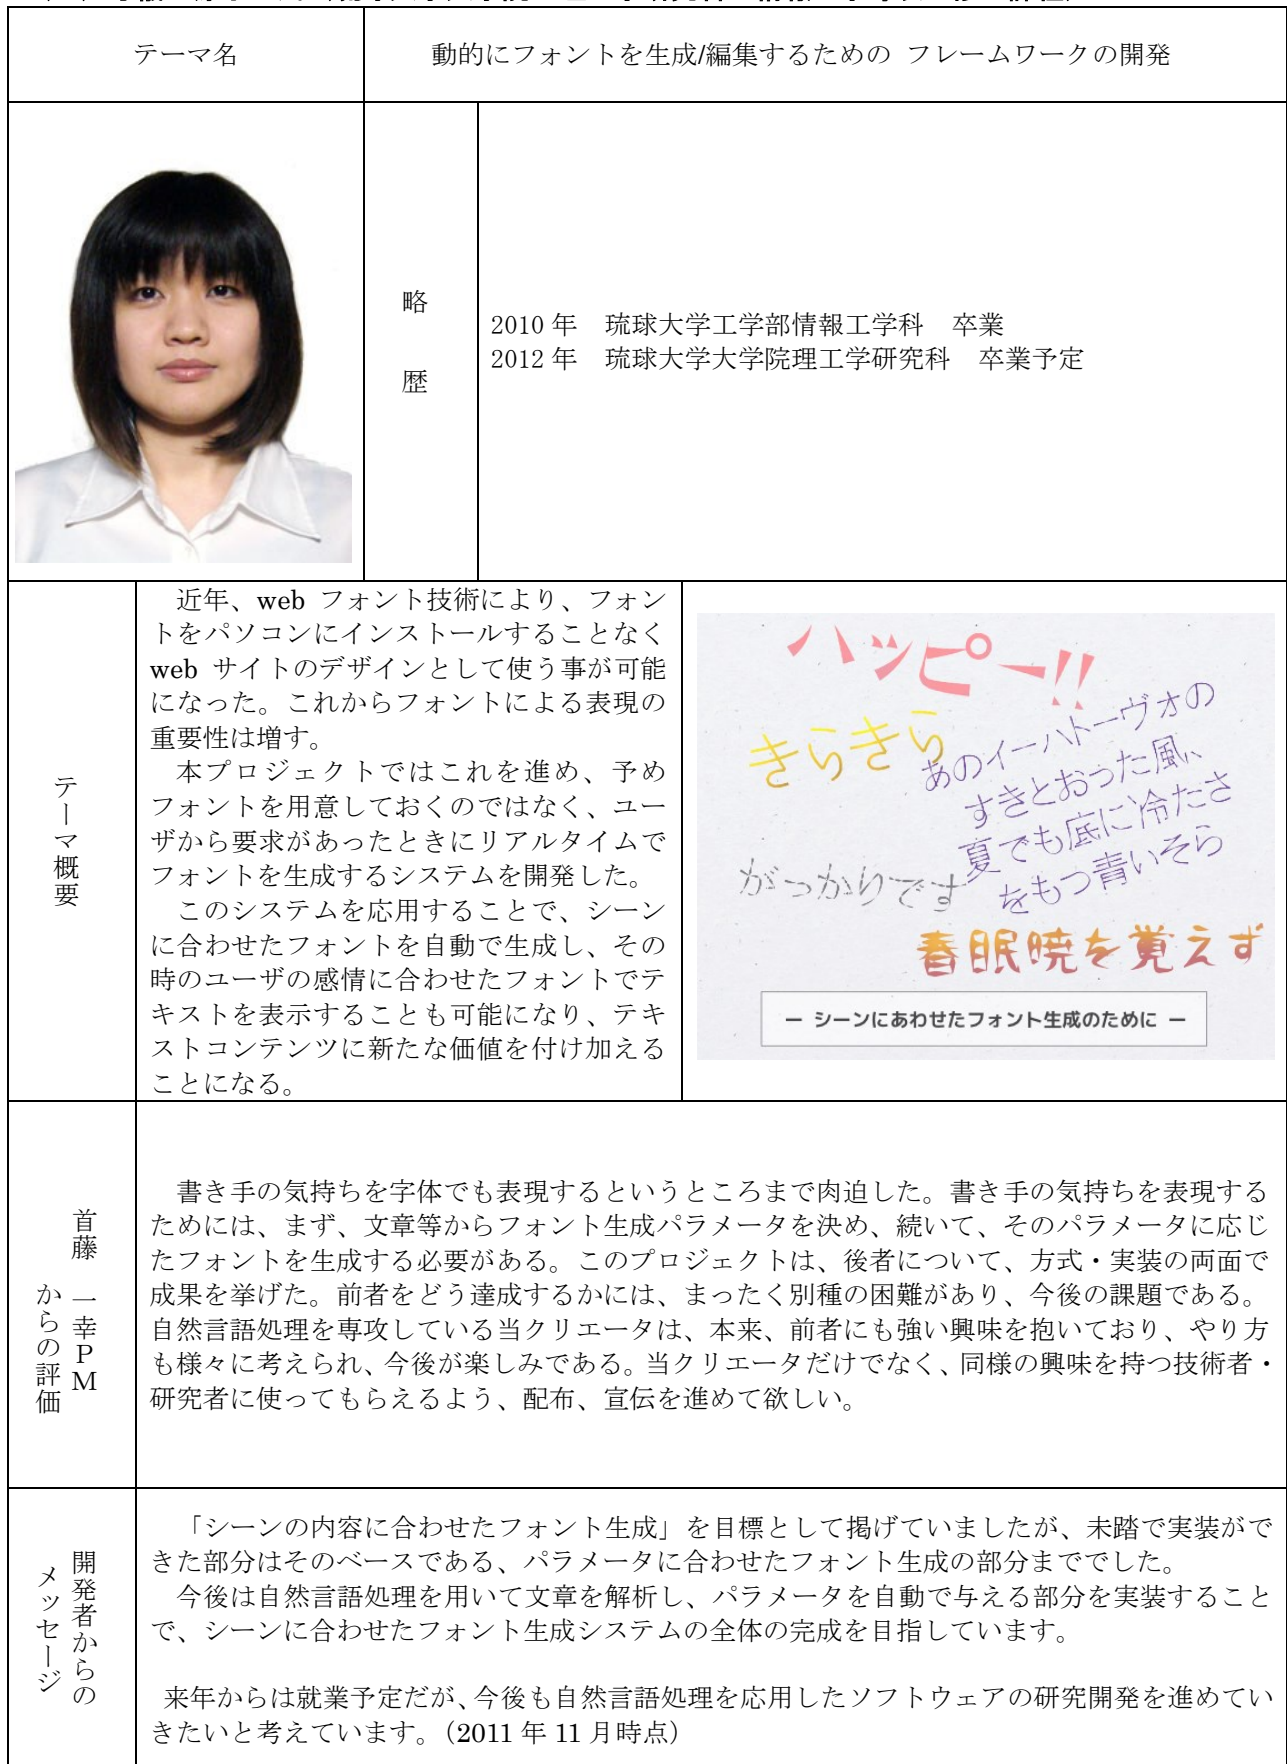 テーマ名
動的にフォントを生成/編集するための フレームワークの開発
略歴
2010年　琉球大学工学部情報工学科　卒業
2012年　琉球大学大学院理工学研究科　卒業予定
テーマ概要
近年、web フォント技術により、フォン
トをパソコンにインストールすることなく
web サイトのデザインとして使う事が可能
になった。これからフォントによる表現の
重要性は増す。
本プロジェクトではこれを進め、予め
フォントを用意しておくのではなく、ユー
ザから要求があったときにリアルタイムで
フォントを生成するシステムを開発した。
このシステムを応用することで、シーン
に合わせたフォントを自動で生成し、その
時のユーザの感情に合わせたフォントでテ
キストを表示することも可能になり、テキ
ストコンテンツに新たな価値を付け加える
ことになる。
ハッピー!!
きらきら
あのイーハトーヴォの
すきとおった風、
夏でも底に冷たさ
をもつ青いそら
がっかりです
春眠暁を覚えず
ー シーンにあわせたフォント生成のために ー
首藤 一幸PM
からの評価
書き手の気持ちを字体でも表現するというところまで肉迫した。書き手の気持ちを表現する
ためには、まず、文章等からフォント生成パラメータを決め、続いて、そのパラメータに応じ
たフォントを生成する必要がある。このプロジェクトは、後者について、方式・実装の両面で
成果を挙げた。前者をどう達成するかには、まったく別種の困難があり、今後の課題である。
自然言語処理を専攻している当クリエータは、本来、前者にも強い興味を抱いており、やり方
も様々に考えられ、今後が楽しみである。当クリエータだけでなく、同様の興味を持つ技術者・
研究者に使ってもらえるよう、配布、宣伝を進めて欲しい。
開発者からの
メッセージ
「シーンの内容に合わせたフォント生成」を目標として掲げていましたが、未踏で実装がで
きた部分はそのベースである、パラメータに合わせたフォント生成の部分まででした。
今後は自然言語処理を用いて文章を解析し、パラメータを自動で与える部分を実装すること
で、シーンに合わせたフォント生成システムの全体の完成を目指しています。
来年からは就業予定だが、今後も自然言語処理を応用したソフトウェアの研究開発を進めてい
きたいと考えています。（2011年11月時点）